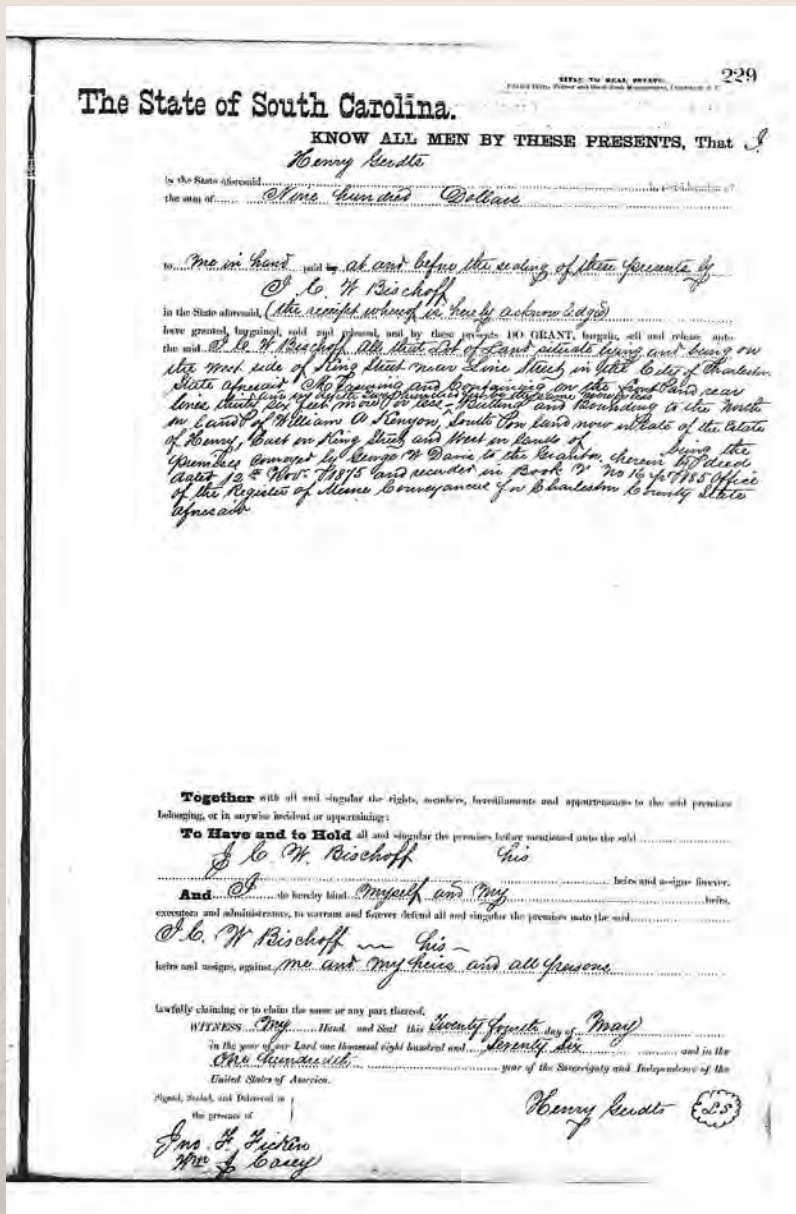 229
TITLE TO REAL ESTATE.
The State of South Carolina.
KNOW ALL MEN BY THESE PRESENTS, That I
Henry Gerdts
in the State aforesaid in consideration of
the sum of Nine hundred Dollars
to me in hand paid by at and before the sealing of these presents by
J C W Bischoff
in the State aforesaid, (the receipt whereof is hereby acknowledged)
have granted, bargained, sold and released, and by these presents DO GRANT, bargain, sell and release unto
the said J C W Bischoff All that Lot of Land situate lying and being on
the west side of King Street near Line Street in the City of Charleston
State aforesaid Measuring and Containing on the front and rear
lines thirty six feet more or less Butting and Bounding to the North
on Lands of William A Kenyon, South on land now or late of the Estate
of Henry, East on King Street and West on lands of being the
premises conveyed by George W Davis to the Grantor herein by deed
dated 12th Novr 1875 and recorded in Book V No 16 p 185 Office
of the Register of Mesne Conveyances for Charleston County State
aforesaid
Together with all and singular the rights, members, hereditaments and appurtenances to the said premises
belonging, or in anywise incident or appertaining:
To Have and to Hold all and singular the premises before mentioned unto the said
J C W. Bischoff his
heirs and assigns forever.
And I do hereby bind myself and my heirs,
executors and administrators, to warrant and forever defend all and singular the premises unto the said
J. C. W Bischoff his
heirs and assigns, against me and my heirs and all persons
lawfully claiming or to claim the same or any part thereof.
WITNESS My Hand and Seal this Twenty fourth day of May
in the year of our Lord one thousand eight hundred and Seventy six and in the
One hundredth year of the Sovereignty and Independence of the
United States of America.
Signed, Sealed, and Delivered in
the presence of
Henry Gerdts LS
Jno. F. Ficken
Wm J Casey